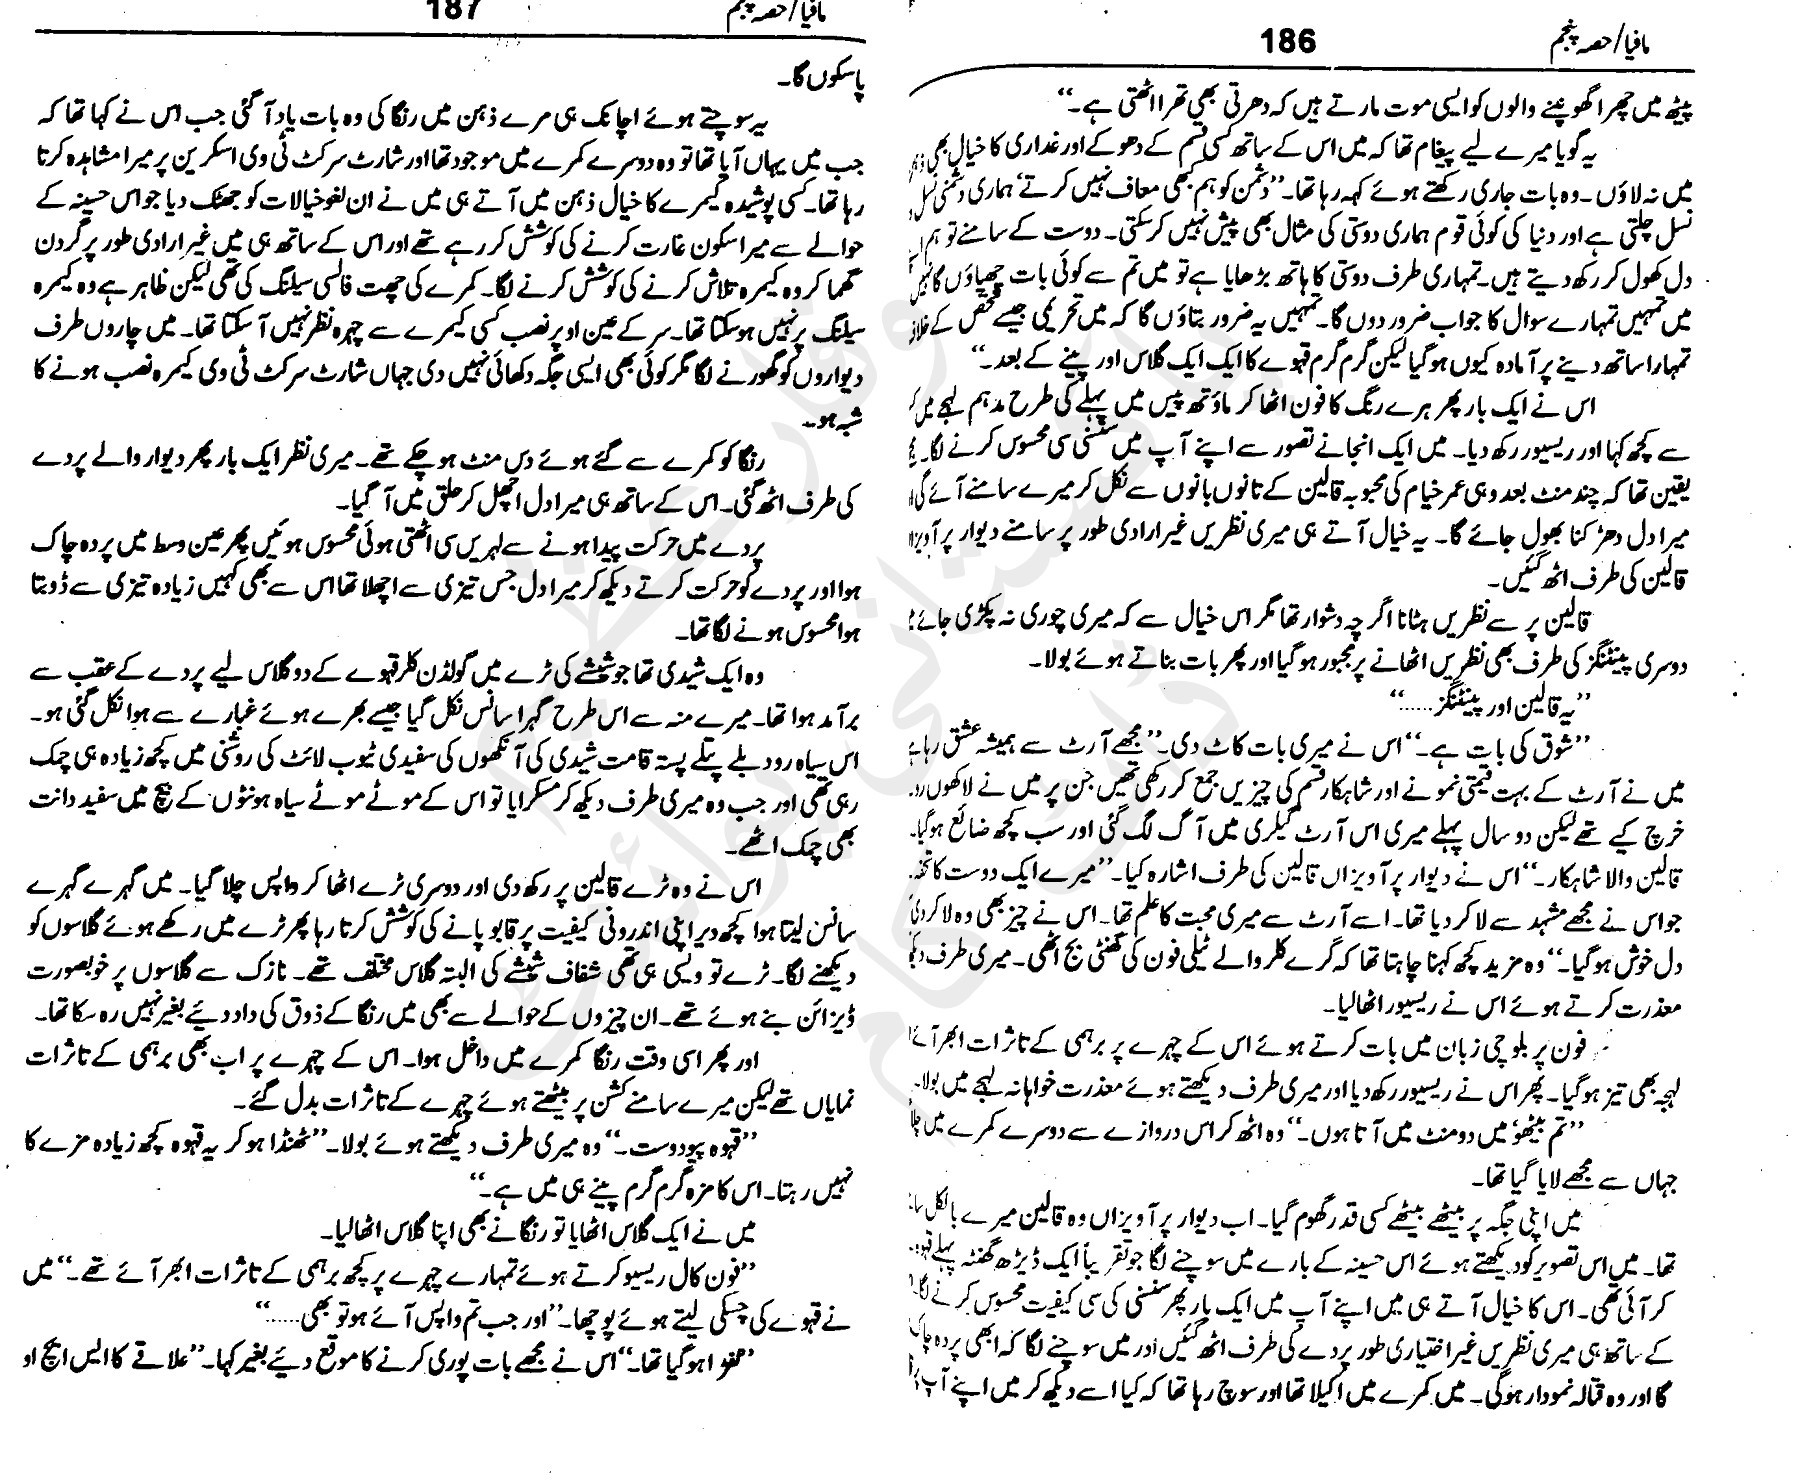 186
مافیا/حصہ پنجم
پیٹھ میں چھرا گھونپنے والوں کو ایسی موت مارتے ہیں کہ دھرتی بھی تھرا اٹھتی ہے۔‘‘
یہ گویا میرے لیے پیغام تھا کہ میں اس کے ساتھ کسی قسم کے دھوکے اور غداری کا خیال بھی
میں نہ لاؤں۔ وہ بات جاری رکھتے ہوئے کہہ رہا تھا۔ ’’دشمن کو ہم کبھی معاف نہیں کرتے‘ ہماری دشمنی نسل
نسل چلتی ہے اور دنیا کی کوئی قوم ہماری دوستی کی مثال بھی پیش نہیں کر سکتی۔ دوست کے سامنے تو ہم
دل کھول کر رکھ دیتے ہیں۔ تمہاری طرف دوستی کا ہاتھ بڑھایا ہے تو میں تم سے کوئی بات چھپاؤں گا نہیں
میں تمہیں تمہارے سوال کا جواب ضرور دوں گا۔ تمہیں یہ ضرور بتاؤں گا کہ میں تحریمی جیسے شخص کے خلاف
تمہارا ساتھ دینے پر آمادہ کیوں ہو گیا لیکن گرم گرم قہوے کا ایک ایک گلاس اور پینے کے بعد۔‘‘
اس نے ایک بار پھر ہرے رنگ کا فون اٹھا کر ماؤتھ پیس میں پہلے کی طرح مدہم لہجے میں
سے کچھ کہا اور ریسیور رکھ دیا۔ میں ایک انجانے تصور سے اپنے آپ میں سنسنی سی محسوس کرنے لگا۔
یقین تھا کہ چند منٹ بعد وہی عمر خیام کی محبوبہ قالین کے تانوں بانوں سے نکل کر میرے سامنے آئے گی
میرا دل دھڑکنا بھول جائے گا۔ یہ خیال آتے ہی میری نظریں غیر ارادی طور پر سامنے دیوار پر آویزاں
قالین کی طرف اٹھ گئیں۔
قالین پر سے نظریں ہٹانا اگرچہ دشوار تھا مگر اس خیال سے کہ میری چوری نہ پکڑی جائے
دوسری پینٹنگز کی طرف بھی نظریں اٹھانے پر مجبور ہو گیا اور پھر بات بناتے ہوئے بولا۔
’’یہ قالین اور پینٹنگز......‘‘
’’شوق کی بات ہے۔‘‘ اس نے میری بات کاٹ دی۔ ’’مجھے آرٹ سے ہمیشہ عشق رہا ہے
میں نے آرٹ کے بہت قیمتی نمونے اور شاہکار قسم کی چیزیں جمع کر رکھی تھیں جن پر میں نے لاکھوں
خرچ کیے تھے لیکن دو سال پہلے میری اس آرٹ گیلری میں آگ لگ گئی اور سب کچھ ضائع ہو گیا۔
قالین والا شاہکار۔‘‘ اس نے دیوار پر آویزاں قالین کی طرف اشارہ کیا۔ ’’میرے ایک دوست کا تحفہ
جو اس نے مجھے مشہد سے لا کر دیا تھا۔ اسے آرٹ سے میری محبت کا علم تھا۔ اس نے چیز بھی وہ لا کر دی
دل خوش ہو گیا۔‘‘ وہ مزید کچھ کہنا چاہتا تھا کہ گرے کلر والے ٹیلی فون کی گھنٹی بج اٹھی۔ میری طرف
معذرت کرتے ہوئے اس نے ریسیور اٹھا لیا۔
فون پر بلوچی زبان میں بات کرتے ہوئے اس کے چہرے پر برہمی کے تاثرات ابھر آئے
لہجہ بھی تیز ہو گیا۔ پھر اس نے ریسیور رکھ دیا اور میری طرف دیکھتے ہوئے معذرت خواہانہ لہجے میں بولا۔
’’تم بیٹھو‘ میں دو منٹ میں آتا ہوں۔‘‘ وہ اٹھ کر اس دروازے سے دوسرے کمرے میں
جہاں سے مجھے لایا گیا تھا۔
میں اپنی جگہ پر بیٹھے بیٹھے کسی قدر گھوم گیا۔ اب دیوار پر آویزاں وہ قالین میرے بالکل
تھا۔ میں اس تصویر کو دیکھتے ہوئے اس حسینہ کے بارے میں سوچنے لگا جو تقریباً ایک ڈیڑھ گھنٹہ پہلے قہوہ
کر آئی تھی۔ اس کا خیال آتے ہی میں اپنے آپ میں ایک بار پھر سنسنی کی سی کیفیت محسوس کرنے لگا۔
کے ساتھ ہی میری نظریں غیر اختیاری طور پر پردے کی طرف اٹھ گئیں اور میں سوچنے لگا کہ ابھی پردہ چاک
گا اور وہ قتالہ نمودار ہوگی۔ میں کمرے میں اکیلا تھا اور سوچ رہا تھا کہ کیا اسے دیکھ کر میں اپنے آپ پر
187
مافیا/حصہ پنجم
پا سکوں گا۔
یہ سوچتے ہوئے اچانک ہی مرے ذہن میں رنگا کی وہ بات یاد آ گئی جب اس نے کہا تھا کہ
جب میں یہاں آیا تھا تو وہ دوسرے کمرے میں موجود تھا اور شارٹ سرکٹ ٹی وی اسکرین پر میرا مشاہدہ کرتا
رہا تھا۔ کسی پوشیدہ کیمرے کا خیال ذہن میں آتے ہی میں نے ان لغو خیالات کو جھٹک دیا جو اس حسینہ کے
حوالے سے میرا سکون غارت کرنے کی کوشش کر رہے تھے اور اس کے ساتھ ہی میں غیر ارادی طور پر گردن
گھما کر وہ کیمرہ تلاش کرنے کی کوشش کرنے لگا۔ کمرے کی چھت فالسی سیلنگ کی تھی لیکن ظاہر ہے وہ کیمرہ
سیلنگ پر نہیں ہو سکتا تھا۔ سر کے عین اوپر نصب کسی کیمرے سے چہرہ نظر نہیں آ سکتا تھا۔ میں چاروں طرف
دیواروں کو گھورنے لگا مگر کوئی بھی ایسی جگہ دکھائی نہیں دی جہاں شارٹ سرکٹ ٹی وی کیمرہ نصب ہونے کا
شبہ ہو۔
رنگا کو کمرے سے گئے ہوئے دس منٹ ہو چکے تھے۔ میری نظر ایک بار پھر دیوار والے پردے
کی طرف اٹھ گئی۔ اس کے ساتھ ہی میرا دل اچھل کر حلق میں آ گیا۔
پردے میں حرکت پیدا ہونے سے لہریں سی اٹھتی ہوئی محسوس ہوئیں پھر عین وسط میں پردہ چاک
ہوا اور پردے کو حرکت کرتے دیکھ کر میرا دل جس تیزی سے اچھلا تھا اس سے بھی کہیں زیادہ تیزی سے ڈوبتا
ہوا محسوس ہونے لگا تھا۔
وہ ایک شیدی تھا جو شیشے کی ٹرے میں گولڈن کلر قہوے کے دو گلاس لیے پردے کے عقب سے
برآمد ہوا تھا۔ میرے منہ سے اس طرح گہرا سانس نکل گیا جیسے بھرے ہوئے غبارے سے ہوا نکل گئی ہو۔
اس سیاہ رو دبلے پتلے پستہ قامت شیدی کی آنکھوں کی سفیدی ٹیوب لائٹ کی روشنی میں کچھ زیادہ ہی چمک
رہی تھی اور جب وہ میری طرف دیکھ کر مسکرایا تو اس کے موٹے موٹے سیاہ ہونٹوں کے بیچ میں سفید دانت
بھی چمک اٹھے۔
اس نے وہ ٹرے قالین پر رکھ دی اور دوسری ٹرے اٹھا کر واپس چلا گیا۔ میں گہرے گہرے
سانس لیتا ہوا کچھ دیر اپنی اندرونی کیفیت پر قابو پانے کی کوشش کرتا رہا پھر ٹرے میں رکھے ہوئے گلاسوں کو
دیکھنے لگا۔ ٹرے تو ویسی ہی تھی شفاف شیشے کی البتہ گلاس مختلف تھے۔ نازک سے گلاسوں پر خوبصورت
ڈیزائن بنے ہوئے تھے۔ ان چیزوں کے حوالے سے بھی میں رنگا کے ذوق کی داد دیئے بغیر نہیں رہ سکا تھا۔
اور پھر اسی وقت رنگا کمرے میں داخل ہوا۔ اس کے چہرے پر اب بھی برہمی کے تاثرات
نمایاں تھے لیکن میرے سامنے کشن پر بیٹھتے ہوئے چہرے کے تاثرات بدل گئے۔
’’قہوہ پیو دوست۔‘‘ وہ میری طرف دیکھتے ہوئے بولا۔ ’’ٹھنڈا ہو کر یہ قہوہ کچھ زیادہ مزے کا
نہیں رہتا۔ اس کا مزہ گرم گرم پینے ہی میں ہے۔‘‘
میں نے ایک گلاس اٹھایا تو رنگا نے بھی اپنا گلاس اٹھا لیا۔
’’فون کال ریسیو کرتے ہوئے تمہارے چہرے پر کچھ برہمی کے تاثرات ابھر آئے تھے۔‘‘ میں
نے قہوے کی چسکی لیتے ہوئے پوچھا۔ ’’اور جب تم واپس آئے ہو تو بھی......‘‘
ہو گیا تھا۔‘‘ اس نے مجھے بات پوری کرنے کا موقع دیئے بغیر کہا۔ ’’علاقے کا ایس ایچ او